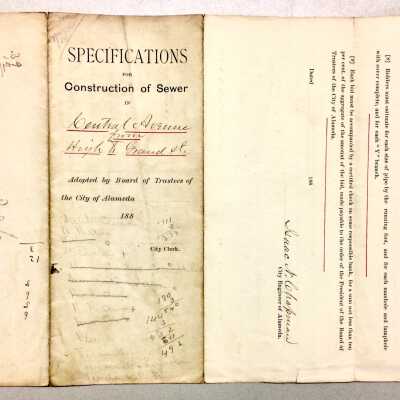 SPECIFICATIONS
FOR
Construction of Sewer
IN
Central Avenue
from
High to Grand St.
Adopted by Board of Trustees of
the City of Alameda
188
City Clerk.
[8] Bidders must estimate for each size of pipe by the running foot, and for each manhole and lamphole
with cover complete, and for each "Y" branch.
[9] Each bid must be accompanied by a certified check on some responsible bank, for a sum not less than ten
per cent. of the aggregate of the amount of the bid, made payable to the order of the President of the Board of
Trustees of the City of Alameda.
Dated 188
Isaac N. Chapman
City Engineer of Alameda.